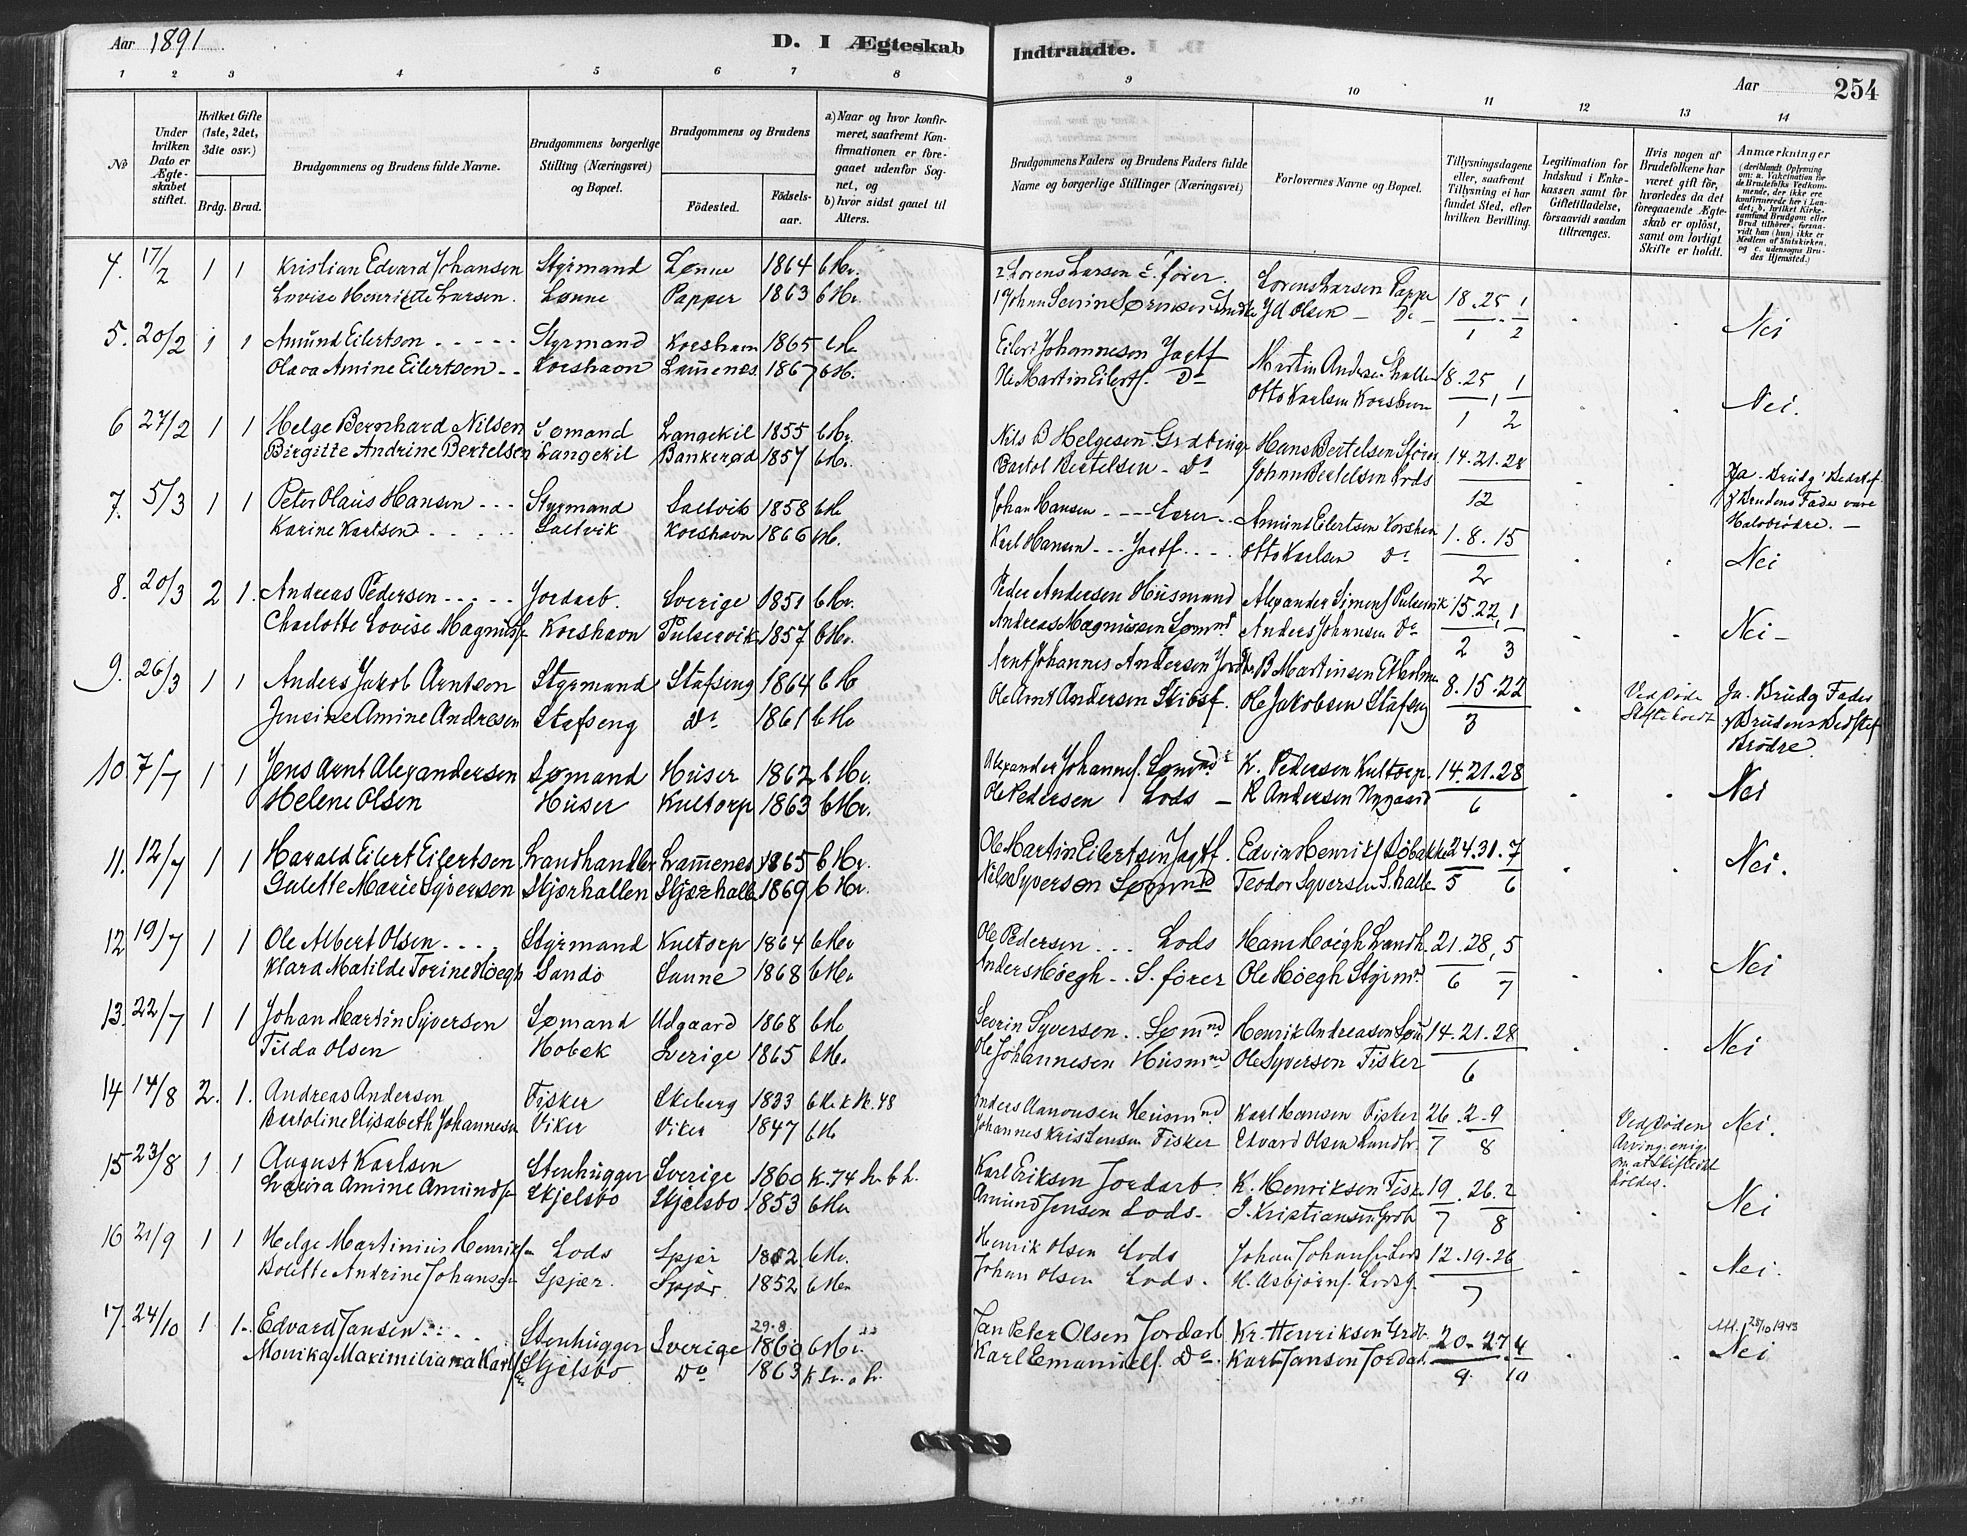 Aar 1891
D. I Ægteskab
Indtraadte.
Aar
254
1 2 3 4 5 6 7 8
9 10 11 12 13 14
No
Under hvilken Dato er Ægteskabet stiftet.
Hvilket Gifte (1ste, 2det, 3die osv.)
Brdg. Brud.
Brudgommens og Brudens fulde Navne.
Brudgommens borgerlige Stilling (Næringsvei) og Bopæl.
Brudgommens og Brudens
Fødested. Fødselsaar.
a) Naar og hvor konfirmeret, saafremt Konfirmationen er foregaaet udenfor Sognet, og
b) hvor sidst gaaet til Alters.
Brudgommens Faders og Brudens Faders fulde Navne og borgerlige Stillinger (Næringsvei)
Forlovernes Navne og Bopæl.
Tillysningsdagene eller, saafremt Tillysning ei har fundet Sted, efter hvilken Bevilling.
Legitimation for Indskud i Enkekassen samt for Giftetilladelse, forsaavidt saadan tiltrænges.
Hvis nogen af Brudefolkene har været gift før, hvorledes da det foregaaende Ægteskab er opløst, samt om lovligt Skifte er holdt.
Anmærkninger
(deriblandt Oplysning om: a. Vakcination for de Brudefolks Vedkommende, der ikke ere konfirmerede her i Landet; b. hvilket Kirkesamfund Brudgom eller Brud tilhører, forsaavidt han (hun) ikke er Medlem af Statskirken, og c. udensogns Brudes Hjemsted.)
4. 17/2 1 1 Kristian Edvard Johansen Styrmand Lønne 1864 b Hv. Lorens Larsen S. fører. Lorens Larsen Papper
Lovise Henriette Larsen. Lønne Papper 1863 b Hv. Johan Severin Sørensen Olsen — Do — 18. 25. 1 / 1 2 Nei
5. 20/2 1 1 Amund Eilertsen Styrmand Korshavn 1865 b Hv Eilert Johannesen Jagtf Martin Anders.
Olava Amine Eilertsen Korshavn Lammenes 1867 b Hv. Ole Martin Eilerts. Do Otto Karlsen Korshavn 18. 25, 1 / 1 2 Nei.
6 27/2 1 1 Helge Bernhard Nilsen Sømand Langekil 1855 b Hv. Nils B Helgesen Hans Bertelsen
Birgitte Andrine Bertelsen Langekil Bankerød 1857 b Hv. Bartol Bertelsen - Do Johan Bertelsen Lods 14. 21. 28 / 12 Ja Brudg. Bedstef
7. 5/3 1 1 Peter Olaus Hansen Styrmand Saltvik 1858 b Hv Johan Hansen Lærer Amund Eilertsen Korshavn & Brudens Fader vare
Karine Karlsen Saltvik Korshavn 1866 b Hv. Karl Hansen Jagtf Otto Karlsen Do 1. 8. 15 / 2 Halvbrødre. — Nei
8. 20/3 2 1. Andreas Pedersen Jordarb. Sverige 1851 b Hv. Peder Andersen Husmand Alexander Simens Pulservik
Charlotte Lovise Magnuss Korshavn Pulservik 1857 b Hv. Andreas Magnussen Sømnd Anders Johansen Do 15. 22, 1 / 2 3 Nei -
9. 26/3 1 1 Anders Jakob Arntsen Styrmand Stafseng 1864 b Hv Arnt Johannes Andersen B Martinsen Ekholmen
Jensine Amine Andresen Stafseng Do 1861 b Hv Ole Arnt Andersen Skibsf. Ole Jakobsen Stafseng 8. 15. 22 / 3 Ved Døde Skifte holdt Ja. Brudg Fader & Brudens Bedstef Brødre
10 7/7 1 1 Jens Arnt Alexandersen Sømand Huser 1862 b Hv. Alexander Johannes. Sømnd K. Pedersen Kultorp. 14. 21. 28 / 6
Helene Olsen Huser Kultorp 1863 b Hv. Ole Pedersen Lods — K Andersen Nygaard Nei
11. 12/7 1 1 Harald Eilert Eilertsen Landhandler Lammenes 1865 b Hv. Ole Martin Eilertsen Jagtf. Edvin Henriks 24. 31. 7 / 5 6
Gulette Marie Syversen Skjærhallen Skjærhallen 1869 b Hv. Nils Syversen Sømnd Teodor Syversen S.halle Nei.
12 19/7 1 1 Ole Albert Olsen Styrmand Kultorp 1864 b Hv Ole Pedersen Lods Hans Høegh Landh. 21. 28, 5 / 6 7
Klara Matilde Torine Høegh Sandø 1868 b Hv Anders Høegh S. fører Ole Høegh Styrmd. Nei
13. 22/7 1 1 Johan Martin Syversen Sømand Udgaard 1868 b Hv Severin Syversen Sømnd Henrik Andreasen 14. 21. 28 / 6
Tilda Olsen Hobæk Sverige 1865 b Hv. Ole Johannesen Husmnd Ole Syversen Fisker Nei
14 14/8 2. 1. Andreas Andersen Fisker Ekeberg 1833 b Hv. k Hv. 48 Anders Husmnd. Karl Hansen Fisker 26. 2. 9 / 7 8
Bertoline Elisabeth Johannesen Viker Viker 1847 b Hv Johannes Kristensen Fisker Edvard Olsen Ved Døden Arving. enig. om at Skifte ikke holdes. Nei.
15 23/8 1 1 August Karlsen Stenhugger Sverige 1860 k. 74 Sv. Karl Eriksen Jordarb. K. Henriksen Fisk. 19. 26. 2 / 7 8
Lovisa Amine Amunds Skjelsbo Skjelsbo 1853 b Hv Amund Jensen Lods. S. Kristiansen Nei
16 21/9 1 1 Helge Martinius Henriksen Lods Spjær 1852 b Hv. Henrik Olsen Lods Johan Johans. Lods 12. 19. 26 / 7
Bolette Andrine Johansen Spjær. Spjær. 1852 b Hv Johan Olsen Lods. H. Asbjørns. Lodsg. Nei.
17. 24/10 1 1. Edvard Jansen Stenhugger Sverige 29.8 1860 b Hv. Jan Peter Olsen Jordarb Kr. Henriksen 20. 27. 4 / 9. 10 Att. 28/10 1943
Monika Maximiliana Karls Skjelsbo Do 1863 k Sv. Karl Emanuels. Do Karl Jansen Jordarb. Nei